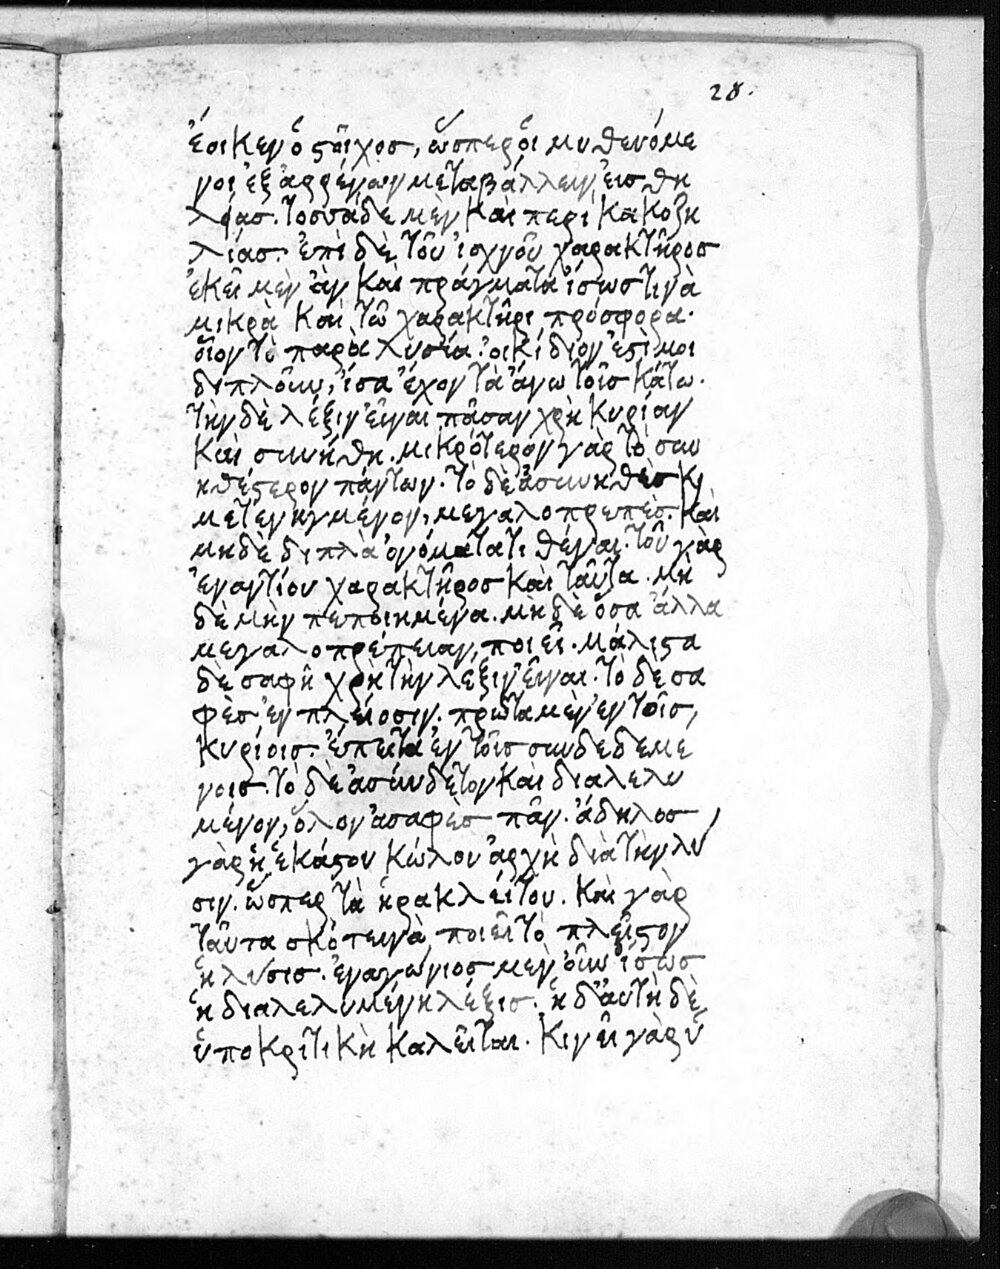 28.
ἔοικεν ὁ στίχοσ, ὥσπερ ὁι μυθευόμε
νοι ἐξ ἀρρένων μεταβάλλειν ἐισ θη
λείασ. τοσσάδε μὲν καὶ περὶ κακοζη
λίασ. ἐπὶ δὲ τοῦ ἰσχνοῦ χαρακτῆροσ
ἐκεῖ μὲν ἂν καὶ πράγματα ἴσωστινὰ
μικρὰ καὶ τῶ χαρακτῆρι πρόσφορα.
οἷον τὸ παρὰ λυσία. οἰκίδιον ἐστί μοι
διπλοῦν, ἴσα ἔχον τὰ ἄνω τοῖσ κάτω.
τὴν δὲ λέξιν εἶναι πᾶσαν χρὴ κυρίαν
καὶ συνήθη. μικρότερον γὰρ τὸ συν
ηθέστερον πάντων. τὸ δὲ ἀσυνηθὲσ κ̀
μετενηνγμένον, μεγαλοπρεπὲσ. καὶ
μηδὲ διπλὰ ὀνόματα τιθέναι. τοῦ γὰρ
ἐναντίου χαρακτῆροσ καὶ ταῦτα. μὴ
δὲ μὴν πεποιημένα. μὴ δὲ ὅσα ἄλλα
μεγαλοπρέπειαν, ποιεῖ. μάλιστα
δὲ σαφῆ χρὴ τὴν λέξιν εἶναι. τὸ δὲ σα
φὲσ ἐν πλείοσιν. πρῶτα μὲν ἐν τοῖσ,
κυρίοισ. ἔπειτα ἐν τοῖσ συνδεδεμέ
νοισ. τὸ δὲ ἀσύνδετον καὶ διαλελυ
μένον, ὅλον ἀσαφὲσ πᾶν. ἄδηλοσ
γὰρ ἡ ἑκάστου κώλου ἀρχὴ διὰ τὴν λύ
σιν. ὥσπερ τὰ ἡρακλείτου. καὶ γὰρ
ταῦτα σκοτεινὰ ποιεῖ τὸ πλεῖστον
ἡ λύσισ. ἐναγώνιοσ μὲν οὖν ἴσωσ
ἡ διαλελυμένη λέξισ. ἡ δ' αὐτὴ δὲ
ὑποκριτικὴ καλεῖται. κινεῖ γὰρ ὑ